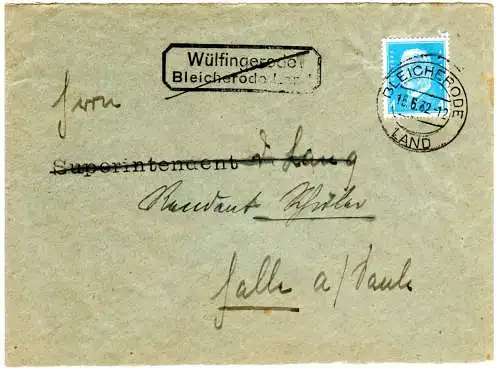 Wülfingerode
Bleicherode Land
BLEICHERODE
LAND
Herrn
Superintendent d Lang
Rendant Schüler
Halle a/Saale